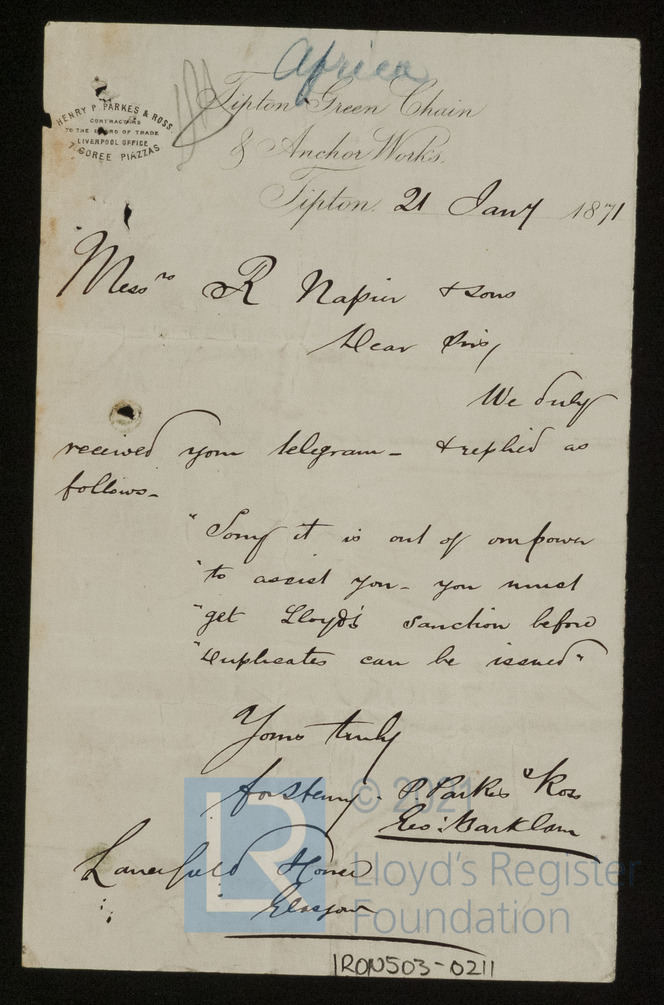 Africa
HENRY P. PARKES & ROSS
CONTRACTORS
TO THE BOARD OF TRADE
LIVERPOOL OFFICE
7, GOREE PIAZZAS
Tipton Green Chain
& Anchor Works.
Tipton. 21 Jany 1871
Messrs R Napier & Sons
Dear Sirs,
We duly
received your telegram - & replied as
follows -
"Sorry it is out of our power
"to assist you - you must
"get Lloyd's sanction before
"duplicates can be issued"
Yours truly
for Henry P Parkes & Ross
Geo: Barklam
Lancefield House
Glasgow
© 2021
LR
Lloyd's Register
Foundation
IRON503-0211